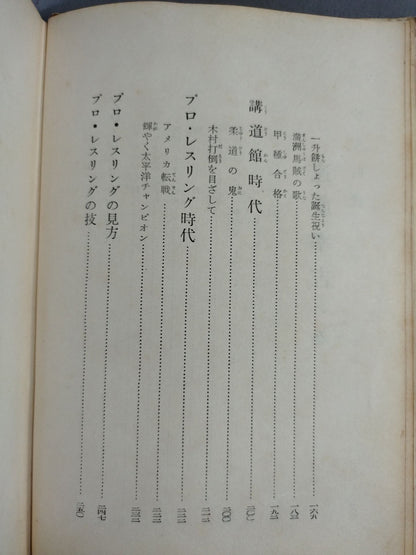 一升餅しょった誕生祝い……一六八
満洲馬賊の歌……一八三
甲種合格……一九二
講道館時代……
柔道の鬼……二〇〇
木村打倒を目ざして……二一三
プロ・レスリング時代……二二二
アメリカ転戦……二二二
輝やく太平洋チャンピオン……二三二
プロ・レスリングの見方……二四七
プロ・レスリングの技……二五〇